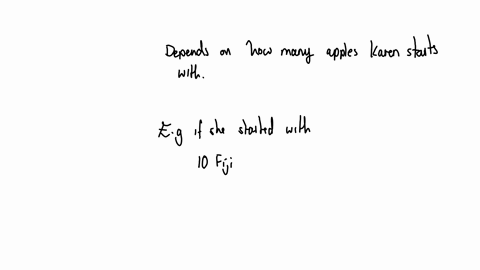 Depends on how many apples Karen starts
with.
E.g if she started with
10 Fiji